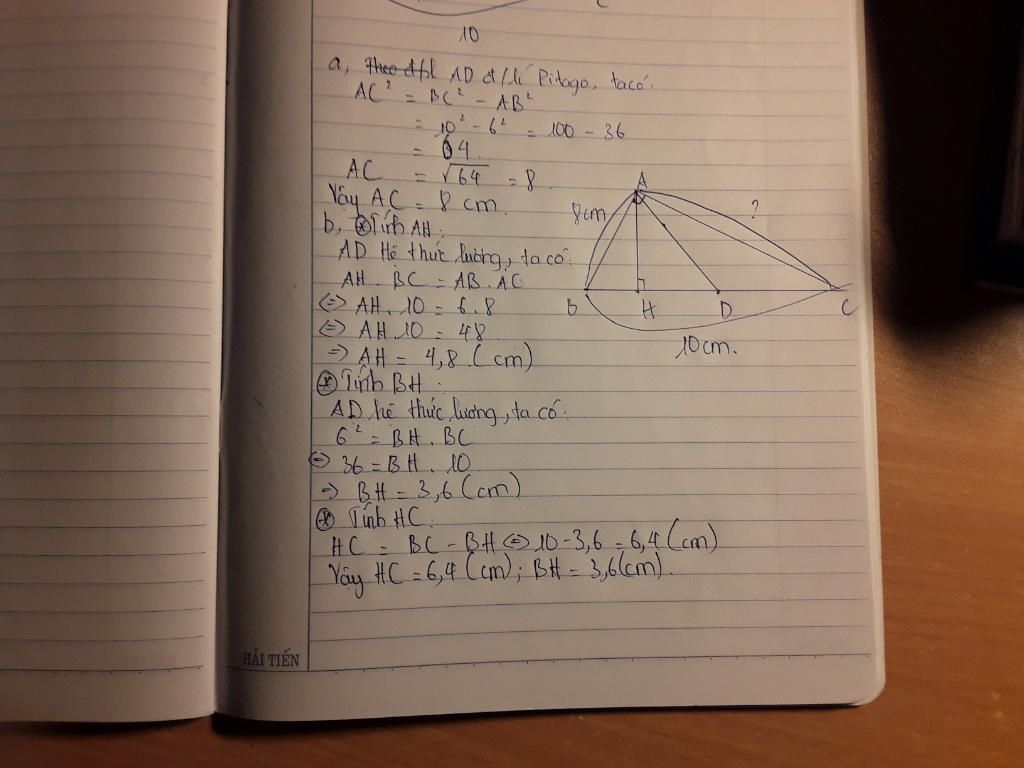 C
10
a, Theo đ/l AD đ/lí Pitago, ta có:
AC² = BC² - AB²
= 10² - 6² = 100 - 36
= 64.
AC = √64 = 8.
Vậy AC = 8 cm.
b, * Tính AH:
AD Hệ thức lượng, ta có:
AH . BC = AB . AC
<=> AH . 10 = 6 . 8
<=> AH . 10 = 48
=> AH = 4,8 (cm)
* Tính BH:
AD hệ thức lương, ta có:
6² = BH . BC
<=> 36 = BH . 10
=> BH = 3,6 (cm)
* Tính HC:
HC = BC - BH <=> 10 - 3,6 = 6,4 (cm)
Vậy HC = 6,4 (cm); BH = 3,6 (cm).
A
8cm
?
B H D C
10cm.
HẢI TIẾN